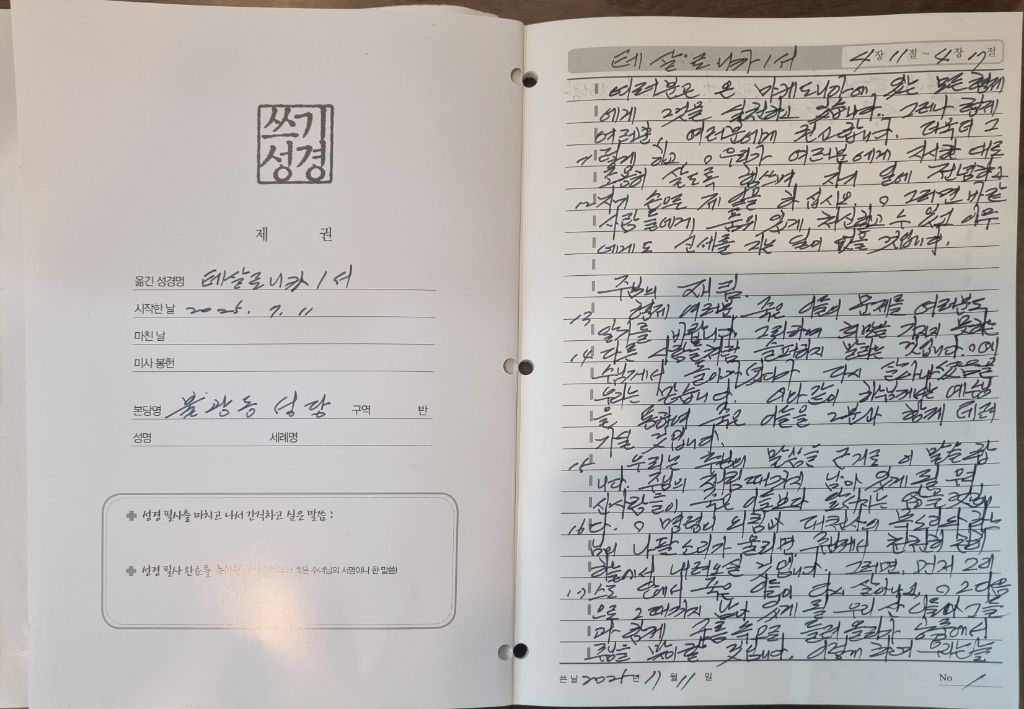 쓰기
성경
제 권
옮긴 성경명 테살로니카 1서
시작한 날 2025. 7. 11
마친 날
미사 봉헌
본당명 불광동 성당 구역 반
성명 세례명
성경 필사를 마치고 나서 간직하고 싶은 말씀 :
성경 필사 완료를 수녀님의 서명이나 한 말씀)
테살로니카 1서 4장 11절 ~ 4장 17절
여러분은 온 마케도니아에 있는 모든 형제
에게 그것을 실천하고 있습니다. 그러나 형제
여러분, 여러분에게 권고합니다. 더욱더 그
렇게 하고, 우리가 여러분에게 지시한 대로
조용히 살도록 힘쓰며 자기 일에 전념하고
12 자기 손으로 제 일을 하십시오. 그러면 바깥
사람들에게 품위 있게 처신할 수 있고 아무
에게도 신세를 지는 일이 없을 것입니다.
주님의 재림
13 형제 여러분, 죽은 이들의 문제를 여러분도
알기를 바랍니다. 그리하여 희망을 가지지 못하는
14 다른 사람들처럼 슬퍼하지 말라는 것입니다. 예
수님께서 돌아가셨다가 다시 살아나셨음을
우리는 믿습니다. 이와 같이 하느님께서는 예수님
을 통하여 죽은 이들을 그분과 함께 데려
가실 것입니다.
15 우리는 주님의 말씀을 근거로 이 말을 합
니다. 주님의 재림 때까지 남아 있게 될 우리
산 사람들이 죽은 이들보다 앞서지는 않을 것입니
16 다. 명령의 외침과 대천사의 목소리와 하느
님의 나팔 소리가 울리면, 주님께서 친히
하늘에서 내려오실 것입니다. 그러면, 먼저 그리
스도 안에서 죽은 이들이 다시 살아나고, 그다음
으로 그때까지 남아 있게 될 우리 산 이들이 그들
과 함께 구름 속으로 들려 올라가 공중에서
주님을 맞이할 것입니다. 이렇게 하여 우리는 늘
쓴 날 2025년 11월 11일 No 1